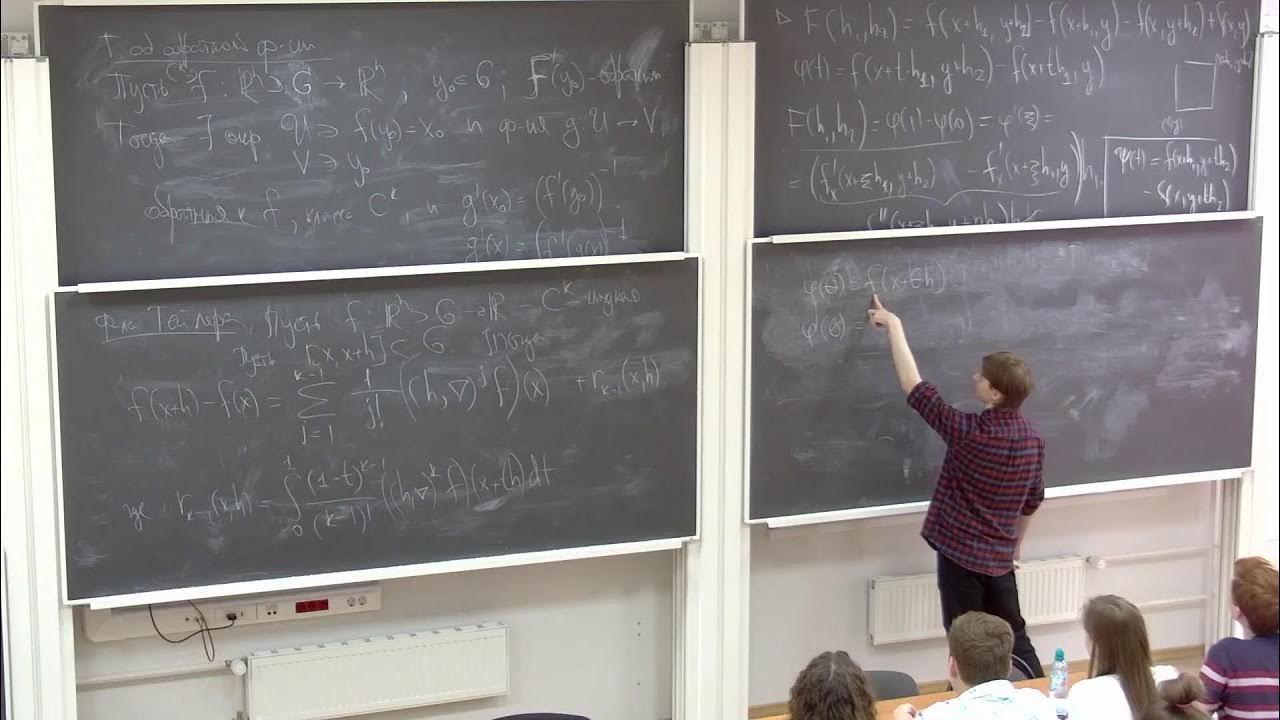 Т. об обратной ф-ии
Пусть C^k f : ℝⁿ ⊃ G → ℝⁿ ; y₀ ∈ G ; f'(y₀) – обратим
Тогда ∃ окр U ∋ f(y₀) = x₀ и ф-ия g: U → V
V ∋ y₀
обратная к f, класса C^k, и g'(x₀) = (f'(y₀))⁻¹
g'(x) = (f'(g(x))⁻¹
Ф-ла Тейлора. Пусть f: ℝⁿ ⊃ G → ℝ – C^k-гладкая
Пусть [x, x+h] ⊂ G. Тогда
f(x+h) – f(x) = ∑_{j=1}^{k-1} 1/j! ((h,∇)^j f)(x) + r_{k-1}(x,h)
где r_{k-1}(x,h) = ∫₀¹ (1-t)^{k-1}/(k-1)! ((h,∇)^k f)(x+th) dt
▷ F(h₁,h₂) = f(x+h₁, y+h₂) – f(x+h₁, y) – f(x, y+h₂) + f(x,y)
φ(t) = f(x+t·h₁, y+h₂) – f(x+th₁, y)
F(h₁,h₂) = φ(1) – φ(0) = φ'(ξ) =
= (f'_x(x+ξh₁, y+h₂) – f'_x(x+ξh₁, y))h₁
ψ(t) = f(x+h₁, y+th₂)
– f(x, y+th₂)
φ(0) = f(x+th)
φ'(0) =